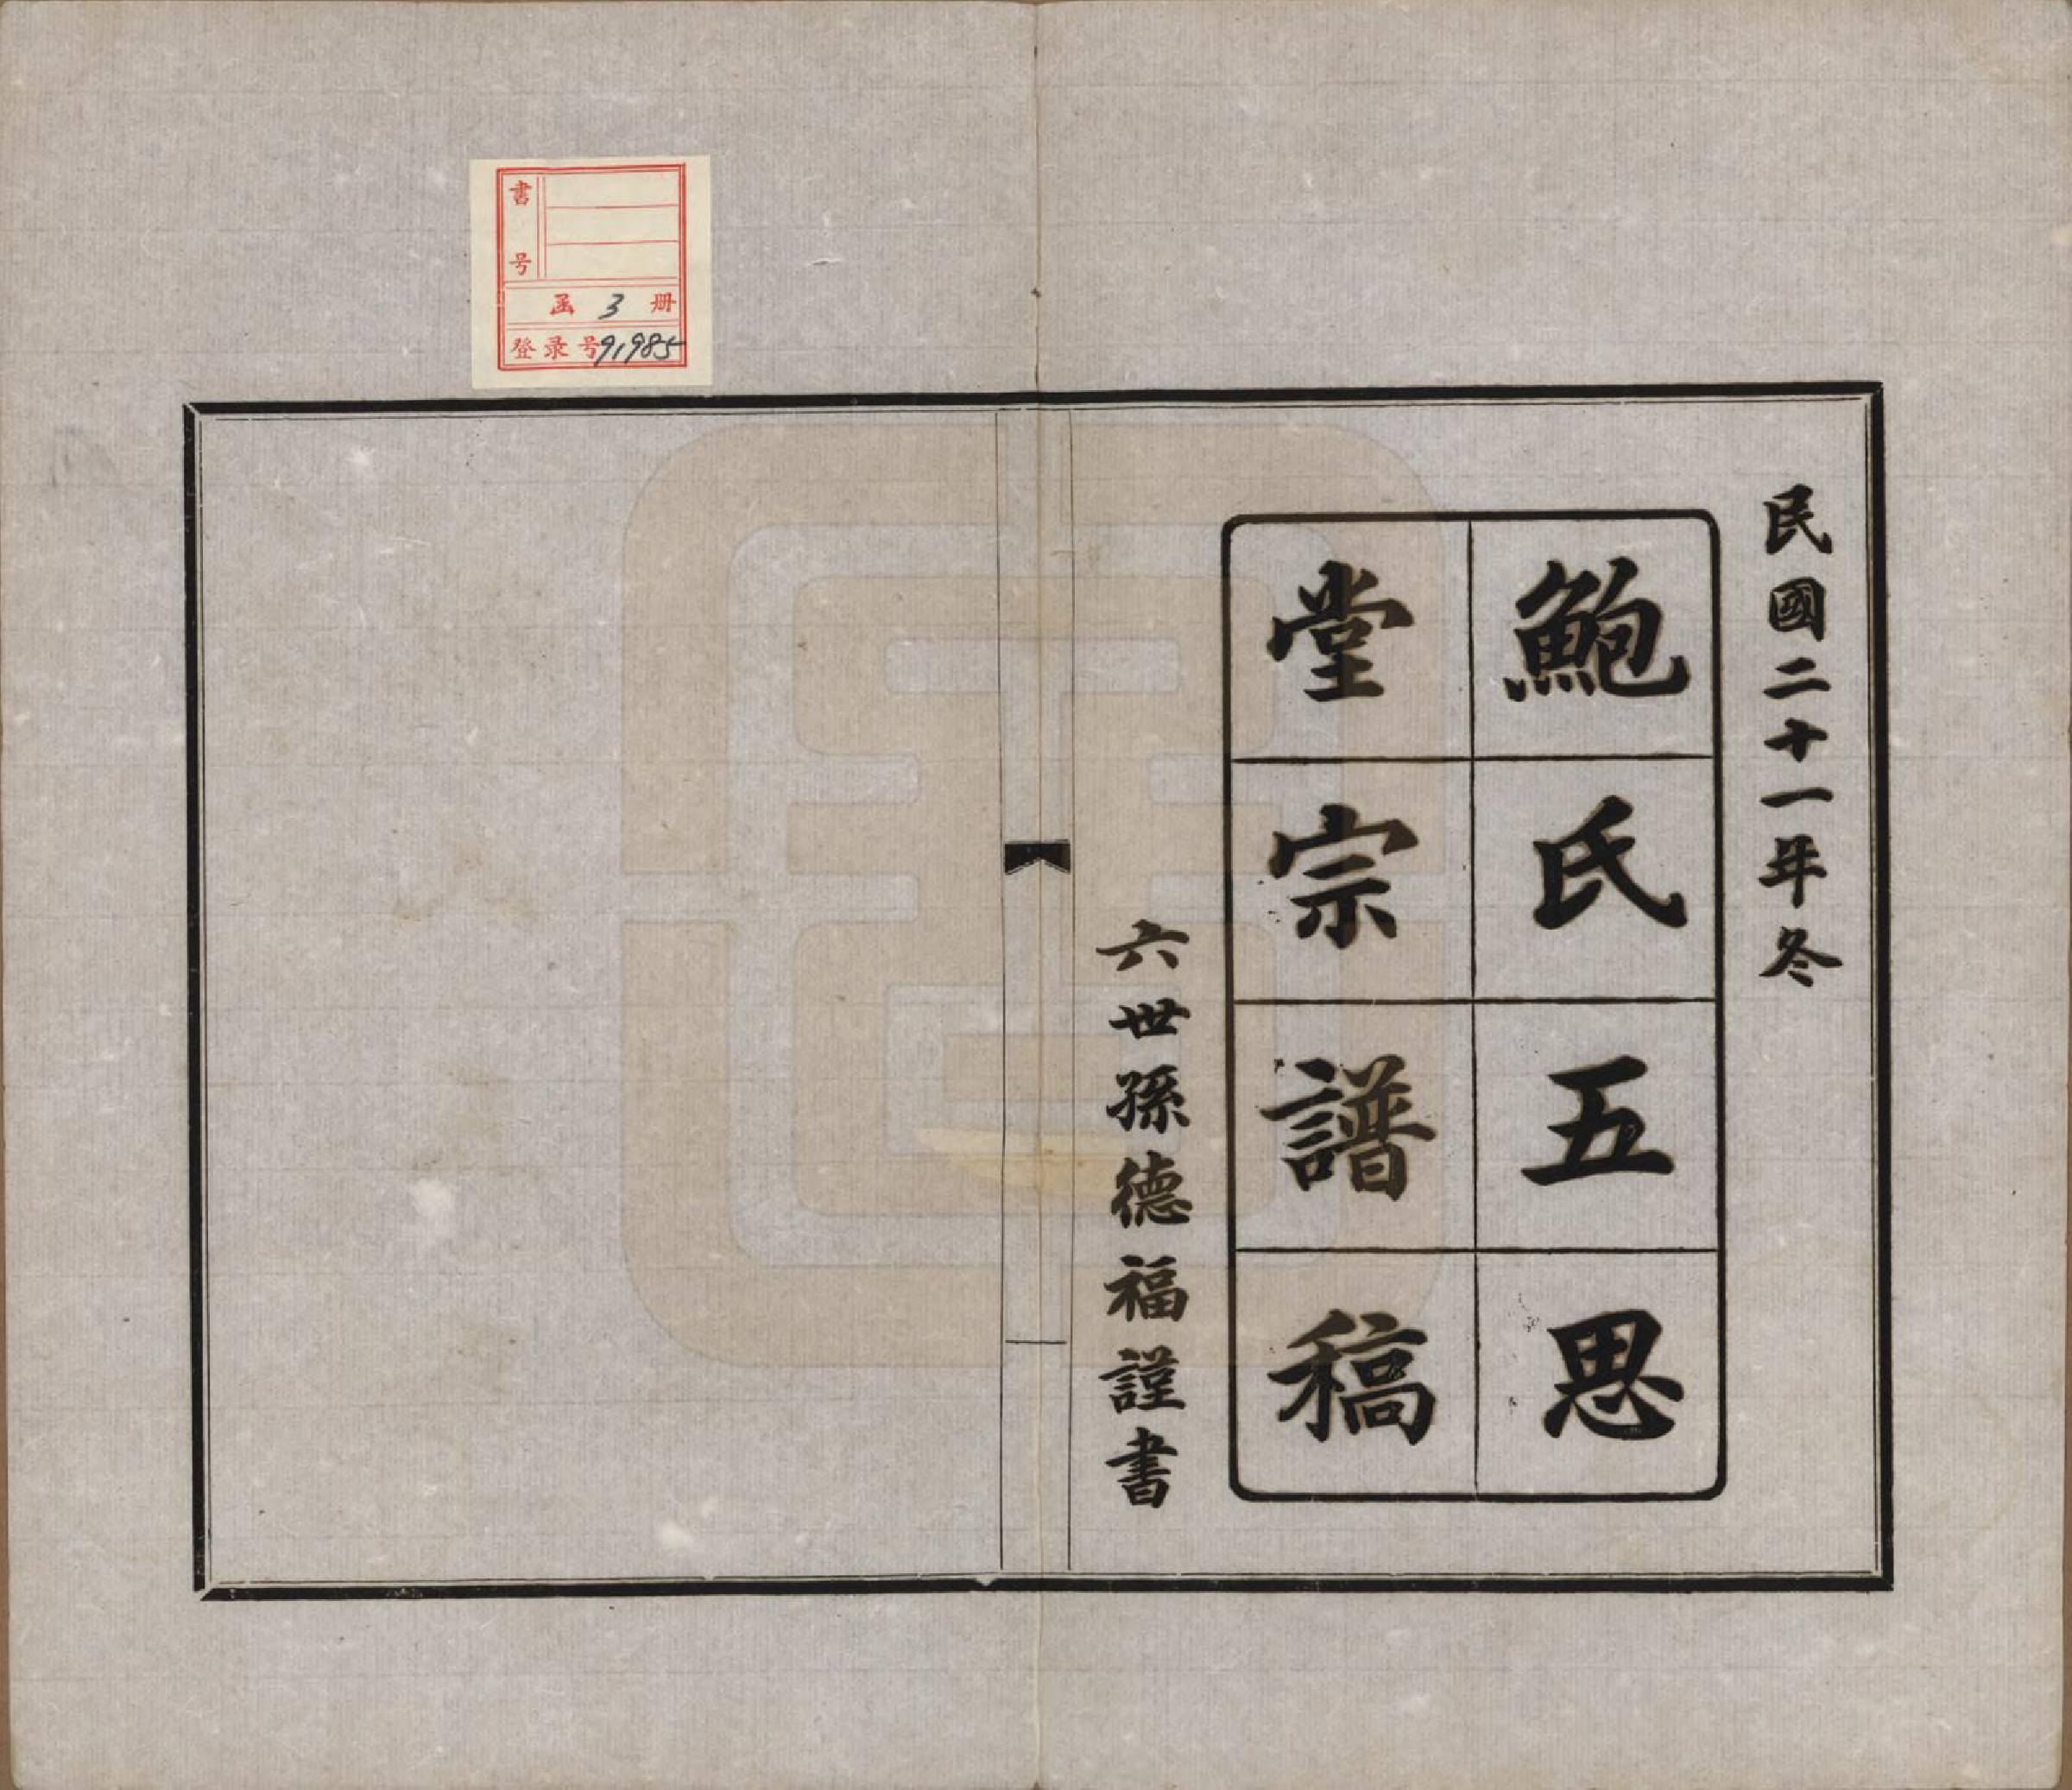 民國二十一年冬
鮑氏五思
堂宗譜稿
六世孫德福謹書
書号
函 3 册
登录号91985